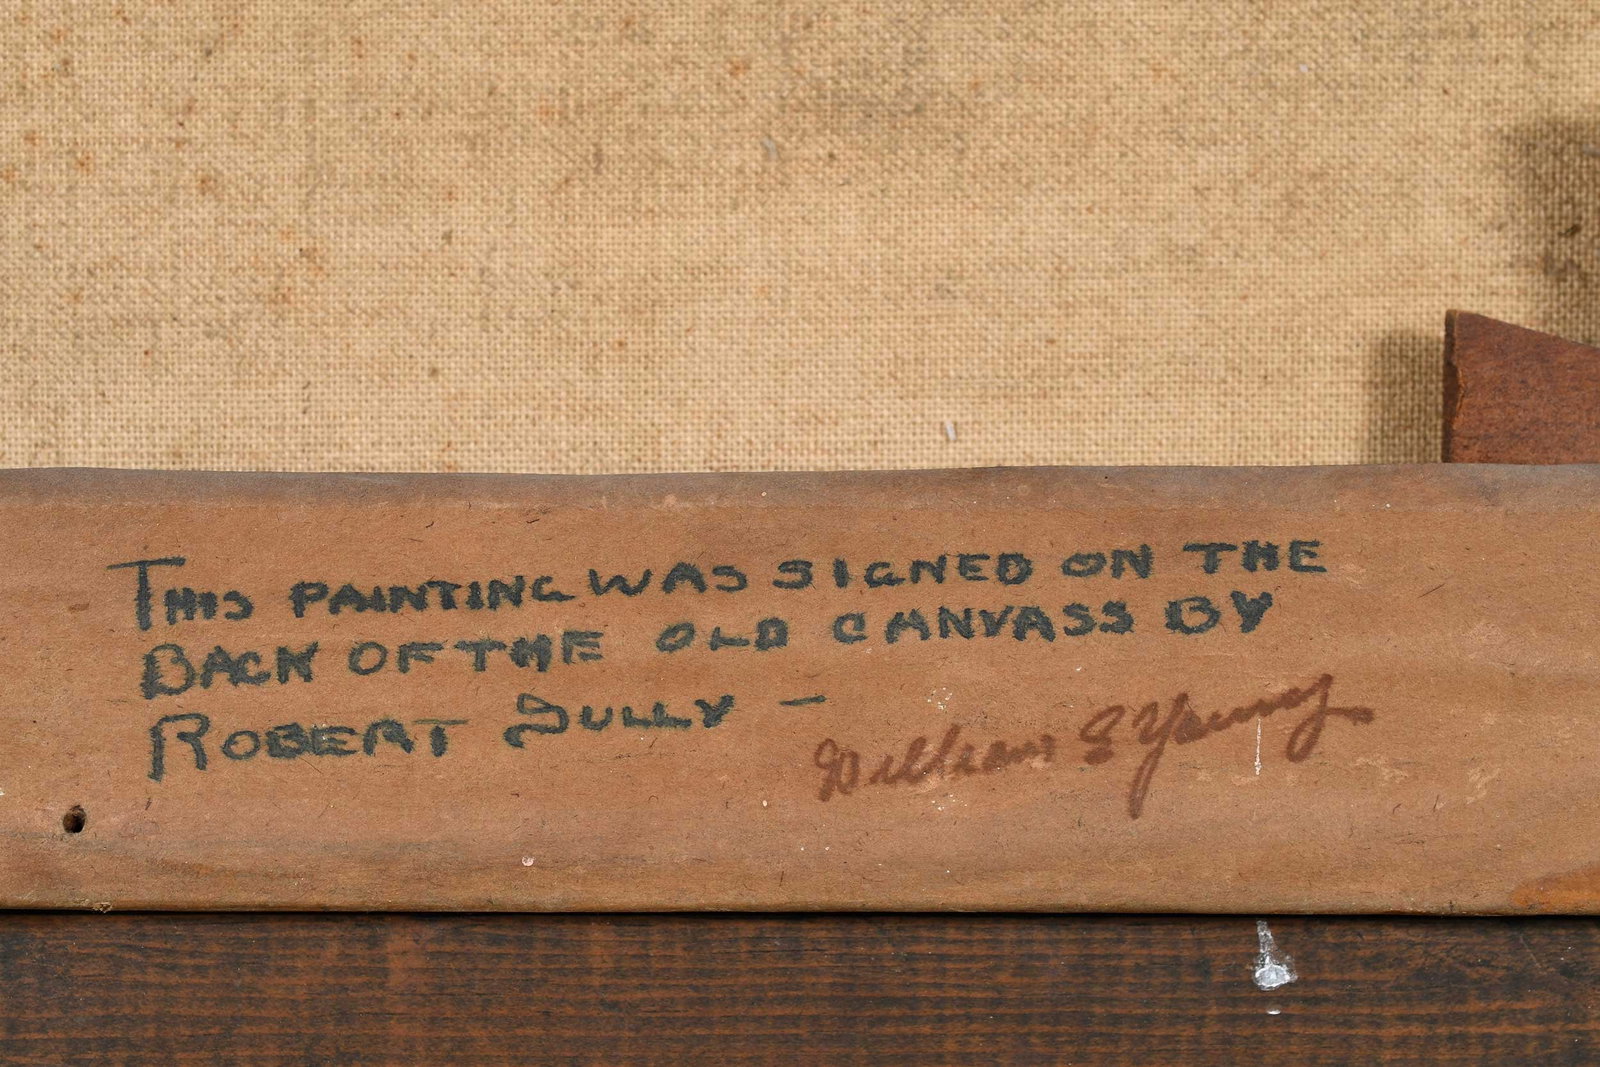 THIS PAINTING WAS SIGNED ON THE
BACK OF THE OLD CANVASS BY
ROBERT SULLY —
William E Young